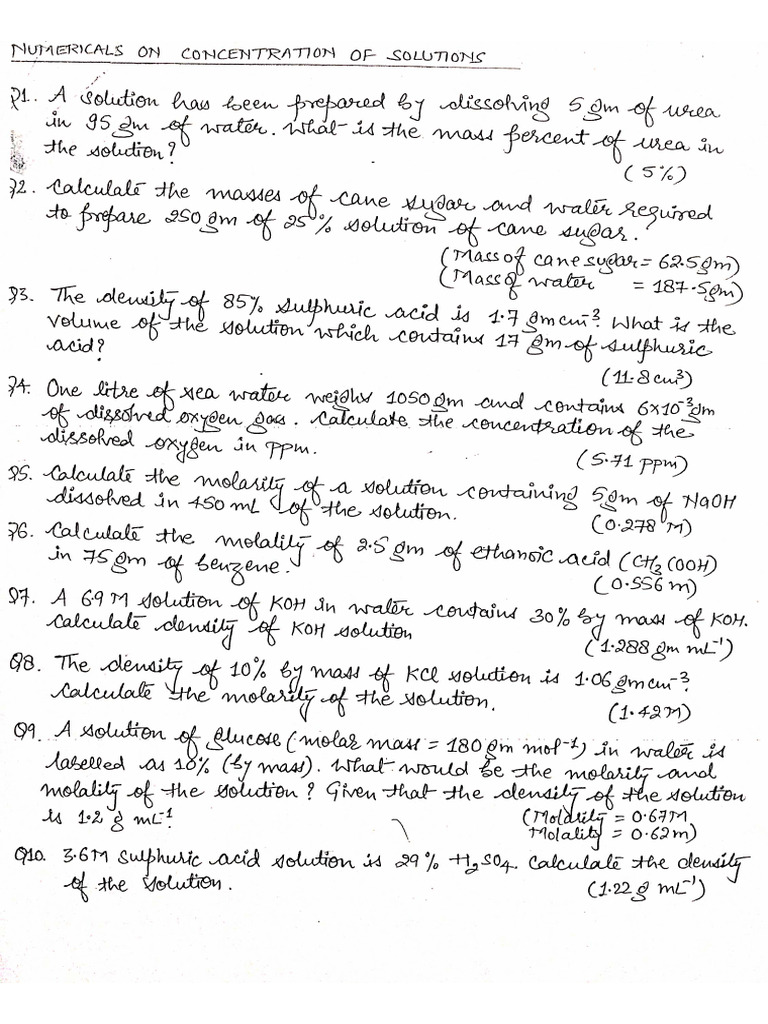 NUMERICALS ON CONCENTRATION OF SOLUTIONS
Q1. A solution has been prepared by dissolving 5 gm of urea
in 95 gm of water. What is the mass percent of urea in
the solution?
(5%)
Q2. Calculate the masses of cane sugar and water required
to prepare 250 gm of 25% solution of cane sugar.
(Mass of cane sugar = 62.5 gm)
(Mass of water = 187.5 gm)
Q3. The density of 85% sulphuric acid is 1.7 gm cm⁻³. What is the
volume of the solution which contains 17 gm of sulphuric
acid?
(11.8 cm³)
Q4. One litre of sea water weighs 1050 gm and contains 6×10⁻³ gm
of dissolved oxygen gas. Calculate the concentration of the
dissolved oxygen in ppm.
(5.71 ppm)
Q5. Calculate the molarity of a solution containing 5 gm of NaOH
dissolved in 450 mL of the solution.
(0.278 M)
Q6. Calculate the molality of 2.5 gm of ethanoic acid (CH₃COOH)
in 75 gm of benzene.
(0.556 m)
Q7. A 6.9 M solution of KOH in water contains 30% by mass of KOH.
Calculate density of KOH solution
(1.288 gm mL⁻¹)
Q8. The density of 10% by mass of KCl solution is 1.06 gm cm⁻³.
Calculate the molarity of the solution.
(1.42 M)
Q9. A solution of glucose (molar mass = 180 gm mol⁻¹) in water is
labelled as 10% (by mass). What would be the molarity and
molality of the solution? Given that the density of the solution
is 1.2 g mL⁻¹.
(Molarity = 0.67 M
Molality = 0.62 m)
Q10. 3.6 M sulphuric acid solution is 29% H₂SO₄. Calculate the density
of the solution.
(1.22 g mL⁻¹)